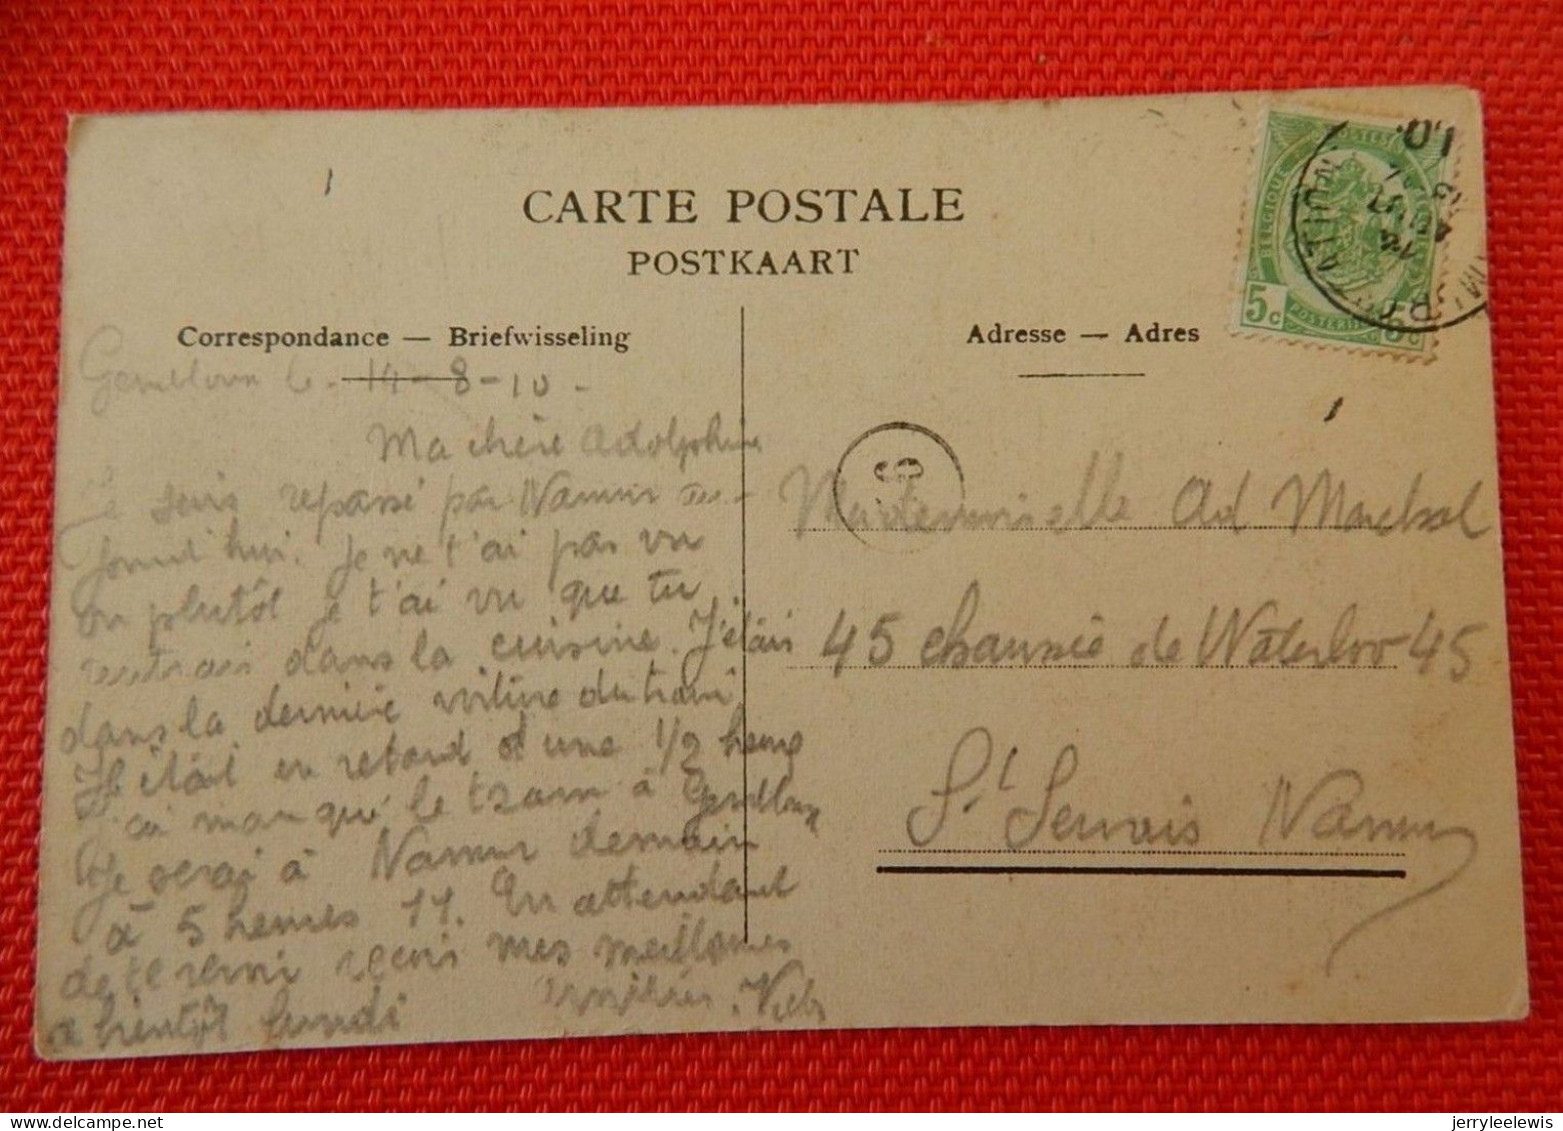 CARTE POSTALE
POSTKAART
Correspondance — Briefwisseling
Gembloux 14-8-10-
Ma chère Adolphine
Je suis repassé par Namur au-
jourd'hui. Je ne t'ai pas vu
ou plutôt je t'ai vu que tu
rentrais dans la cuisine. J'étais
dans la dernière voiture du train
Il était en retard d'une 1/2 heure
J'ai manqué le tram à Gembloux
Je serai à Namur demain
à 5 heures 11. En attendant
de te revoir reçois mes meilleures
a bientôt lundi
Adresse — Adres
Mademoiselle Ad Maréchal
45 chaussée de Waterloo 45
St Servais Namur
BELGIQUE
5c
5c
10
jerryleelewis